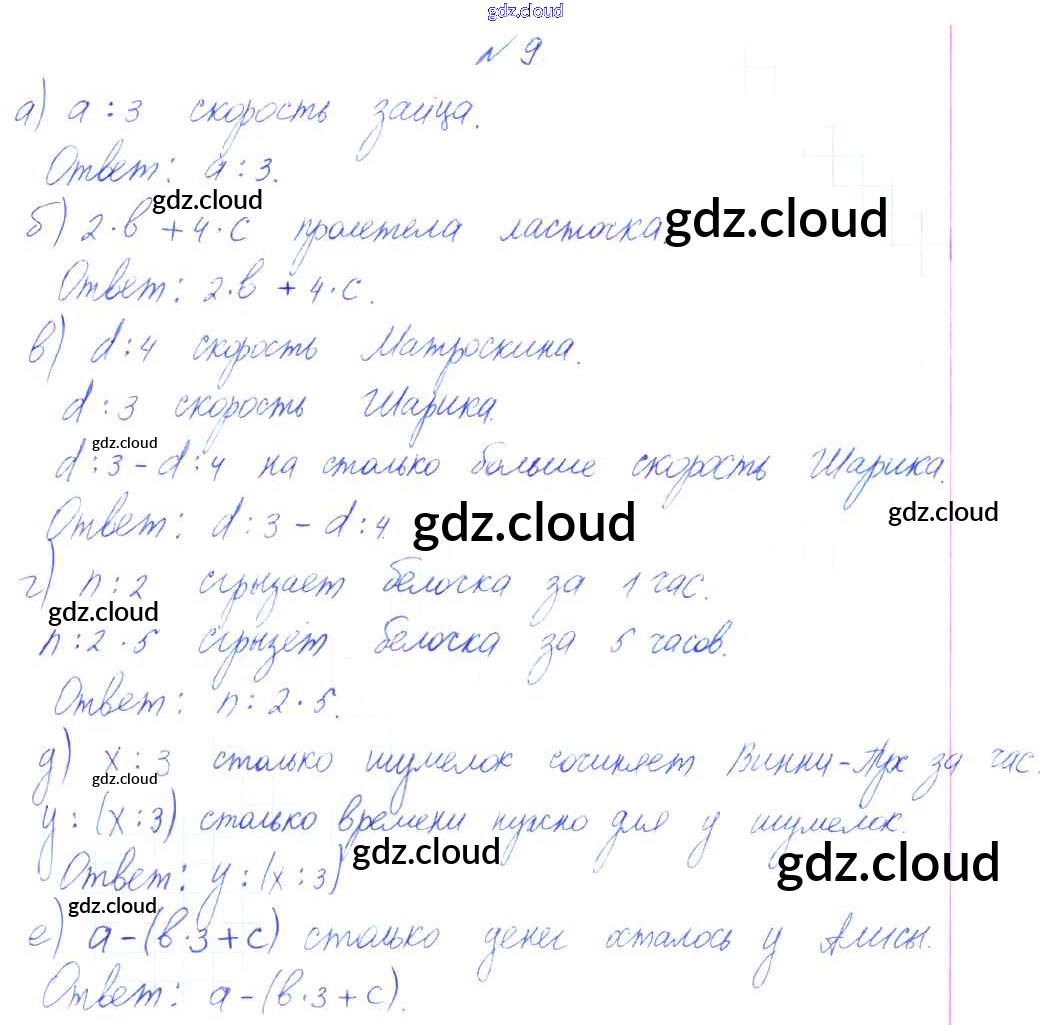 gdz.cloud
№ 9
а) a : 3 скорость зайца.
Ответ: a : 3.
gdz.cloud
б) 2·b + 4·c пролетела ласточка. gdz.cloud
Ответ: 2·b + 4·c.
в) d : 4 скорость Матроскина.
d : 3 скорость Шарика.
gdz.cloud
d : 3 - d : 4 на столько больше скорость Шарика.
Ответ: d : 3 - d : 4. gdz.cloud gdz.cloud
г) n : 2 сгрызает белочка за 1 час.
gdz.cloud
n : 2 · 5 сгрызёт белочка за 5 часов.
Ответ: n : 2 · 5.
д) x : 3 столько шумелок сочиняет Винни-Пух за час.
gdz.cloud
y : (x : 3) столько времени нужно для y шумелок.
Ответ: y : (x : 3) gdz.cloud gdz.cloud
gdz.cloud
е) a - (b · 3 + c) столько денег осталось у Алисы.
Ответ: a - (b · 3 + c).